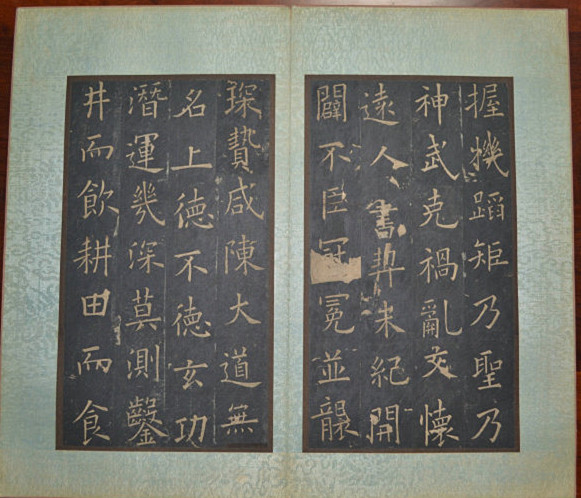 握機蹈矩乃聖乃
神武克禍亂文懷
遠人書契未紀開
闢不臣冠冕並襲
琛贄咸陳大道無
名上德不德玄功
潛運幾深莫測鑿
井而飲耕田而食